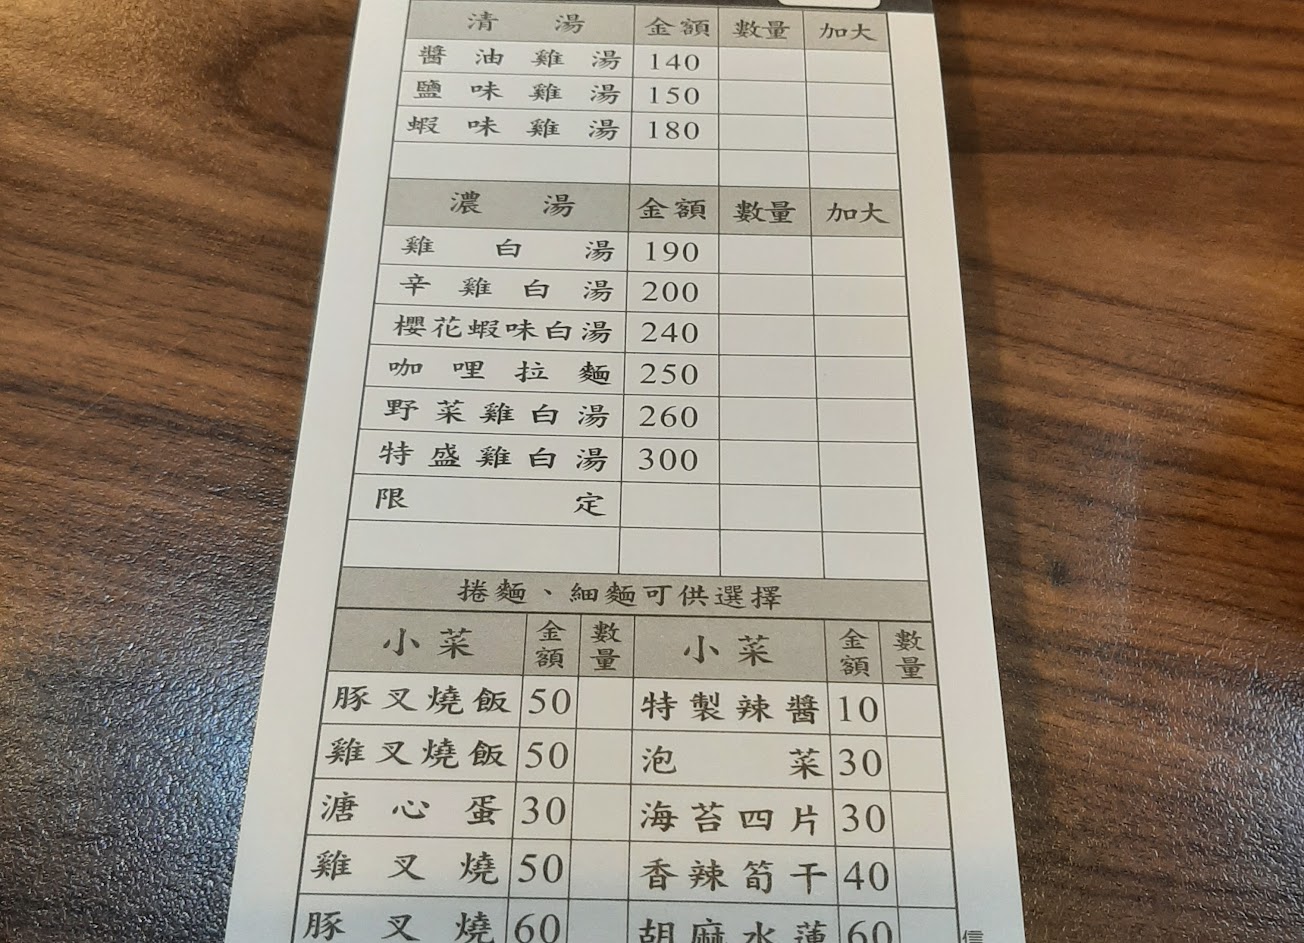 清湯 金額 數量 加大
醬油雞湯 140
鹽味雞湯 150
蝦味雞湯 180
濃湯 金額 數量 加大
雞白湯 190
辛雞白湯 200
櫻花蝦味白湯 240
咖哩拉麵 250
野菜雞白湯 260
特盛雞白湯 300
限定
捲麵、細麵可供選擇
小菜 金額 數量 小菜 金額 數量
豚叉燒飯 50 特製辣醬 10
雞叉燒飯 50 泡菜 30
溏心蛋 30 海苔四片 30
雞叉燒 50 香辣筍干 40
豚叉燒 60 胡麻水蓮 60